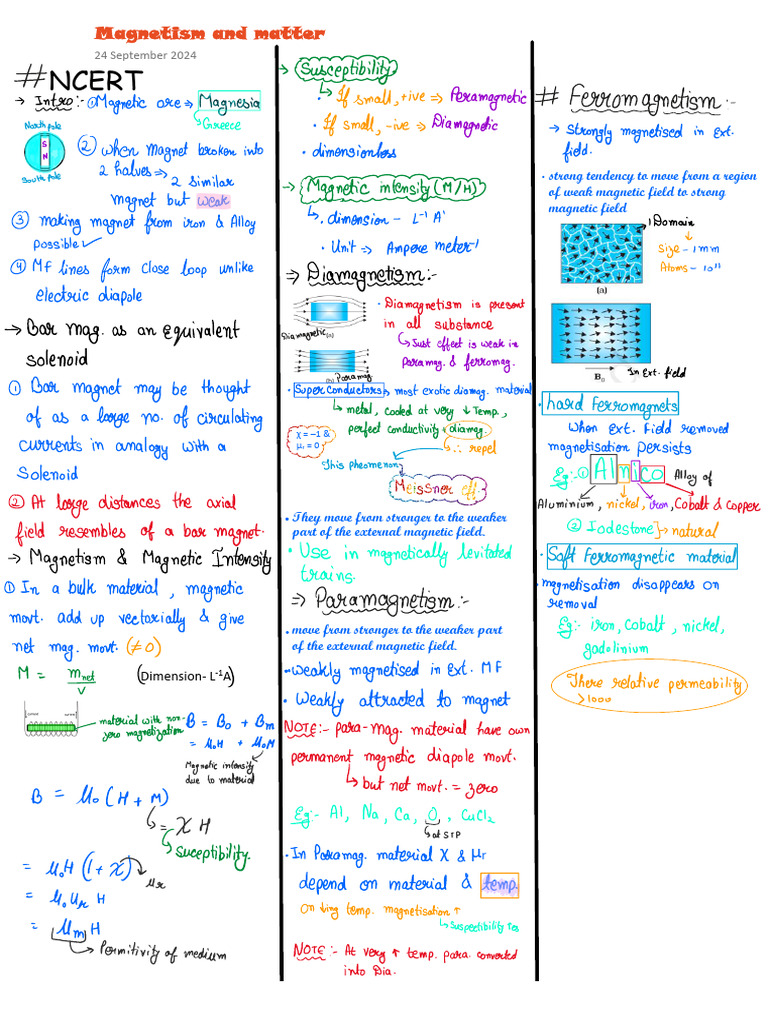 Magnetism and matter
24 September 2024
#NCERT
→ Intro:- ① Magnetic ore ⇒ Magnesia
↳ Greece
North pole
S
N
South pole
② when Magnet broken into
2 halves ⇒ 2 similar
magnet but weak
③ making magnet from iron & Alloy
possible ✓
④ Mf lines form close loop unlike
electric diapole
→ Bar mag. as an equivalent
solenoid
① Bar magnet may be thought
of as a large no. of circulating
currents in analogy with a
Solenoid
② At large distances the axial
field resembles of a bar magnet.
→ Magnetism & Magnetic Intensity
① In a bulk material, magnetic
movt. add up vectorially & give
net mag. movt. (≠0)
M = m_net / V (Dimension- L⁻¹A)
material with non-
zero magnetization
B = B₀ + Bm
= μ₀H + μ₀M
Magnetic intensity
due to material
B = μ₀ (H + M)
↳ = χ H
↳ Suceptibility.
= μ₀H (1 + χ)
μr
= μ₀ μr H
= μm H
↳ Permitivity of medium
→ Susceptibility
• If small, +ive ⇒ Paramagnetic
• If small, -ive ⇒ Diamagnetic
• dimensionless
→ Magnetic intensity (M/H)
↳. dimension - L⁻¹ A¹
• Unit ⇒ Ampere meter⁻¹
⇒ Diamagnetism:-
Diamagnetic (a)
(b) Paramag.
• Diamagnetism is present
in all substance
↳ Just effect is weak in
Paramag. & ferromag.
• Super Conductors → most exotic diamag. material
↳ metal, cooled at very ↓ temp.,
perfect conductivity + diamag.
↳ ∴ repel
χ = -1 &
μr = 0
This pheomenon
Meissner eff.
• They move from stronger to the weaker
part of the external magnetic field.
• Use in magnetically levitated
trains.
⇒ Paramagnetism:-
• move from stronger to the weaker part
of the external magnetic field.
• weakly magnetised in Ext. MF
• Weakly attracted to magnet
NOTE:- para-mag. material have own
permanent magnetic diapole movt.
↳ but net movt. = zero
Eg:- Al, Na, Ca, O, CuCl₂
↳ at STP
• In Paramag. material χ & μr
depend on material & temp.
On ↓ing temp. magnetisation ↑
↳ Suspectibility ↑es
NOTE:- At very ↑ temp. para. converted
into Dia.
# Ferromagnetism:-
→ Strongly magnetised in Ext.
field.
• strong tendency to move from a region
of weak magnetic field to strong
magnetic field
1 Domain
↓
Size - 1mm
Atoms - 10¹¹
(a)
B₀
In Ext. field
• hard Ferromagnets
When ext. field removed
magnetisation persists
Eg:- ① Alnico Alloy of
Aluminium, nickel, iron, Cobalt & Copper
② Iodestone] → natural
• Soft Ferromagnetic material
magnetisation disappears on
removal
Eg:- iron, Cobalt, nickel,
gadolinium
There relative permeability
>1000